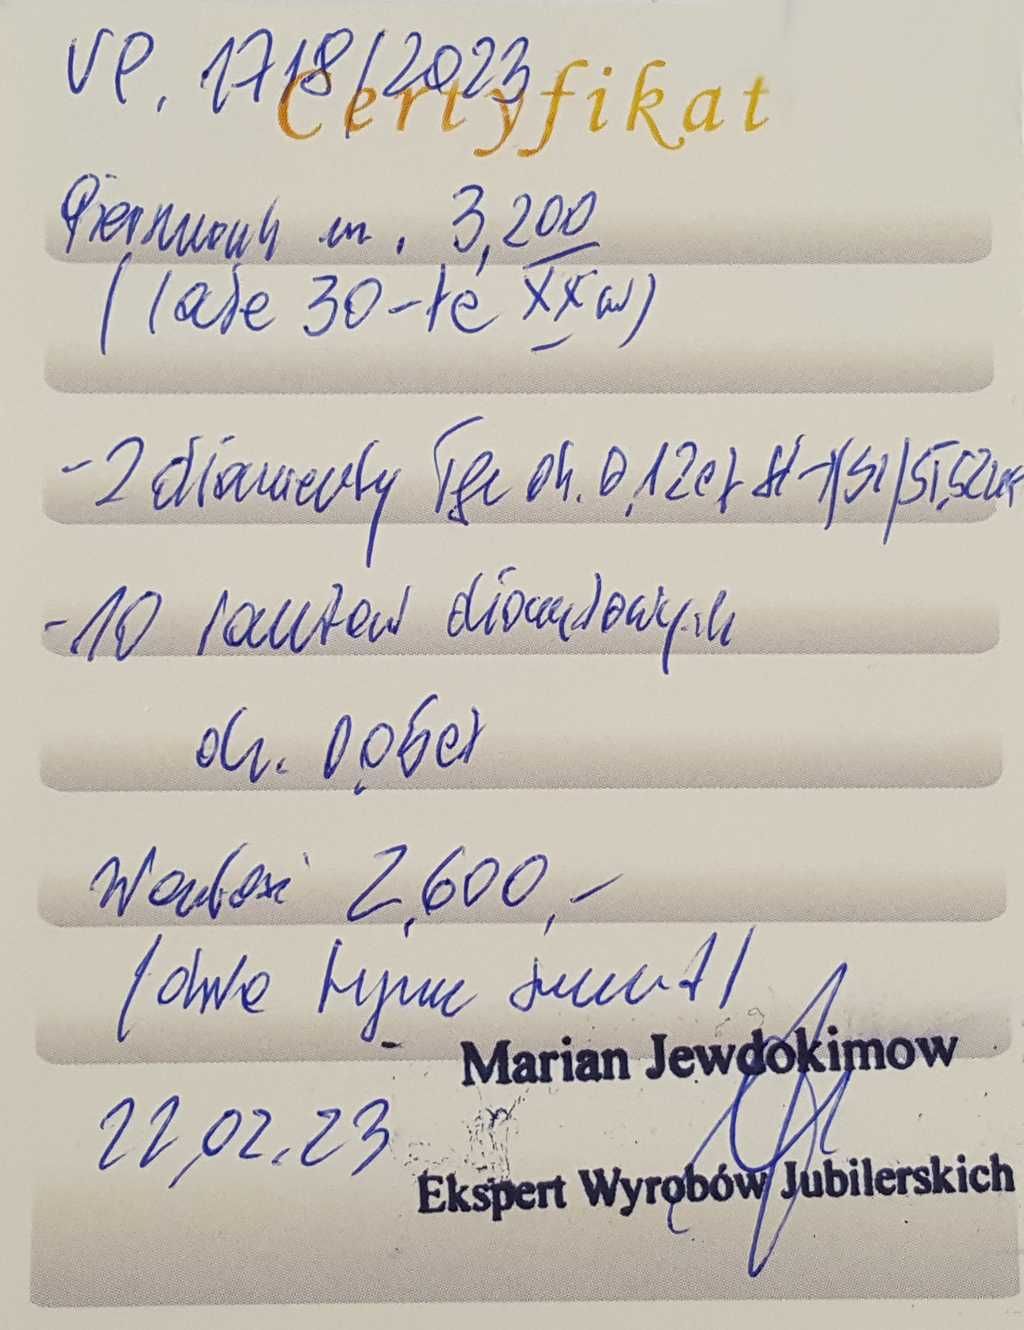 VP. 1718/2023
Certyfikat
Pierścionek m. 3,200
(lata 30-te XX w)
- 2 diamenty ok. 0,12ct H-J/SI/
- 10 rautów diamentowych
ok. 0,05ct
Wartość 2,600,-
(dwa tys.
Marian Jewdokimow
22,02.23
Ekspert Wyrobów Jubilerskich